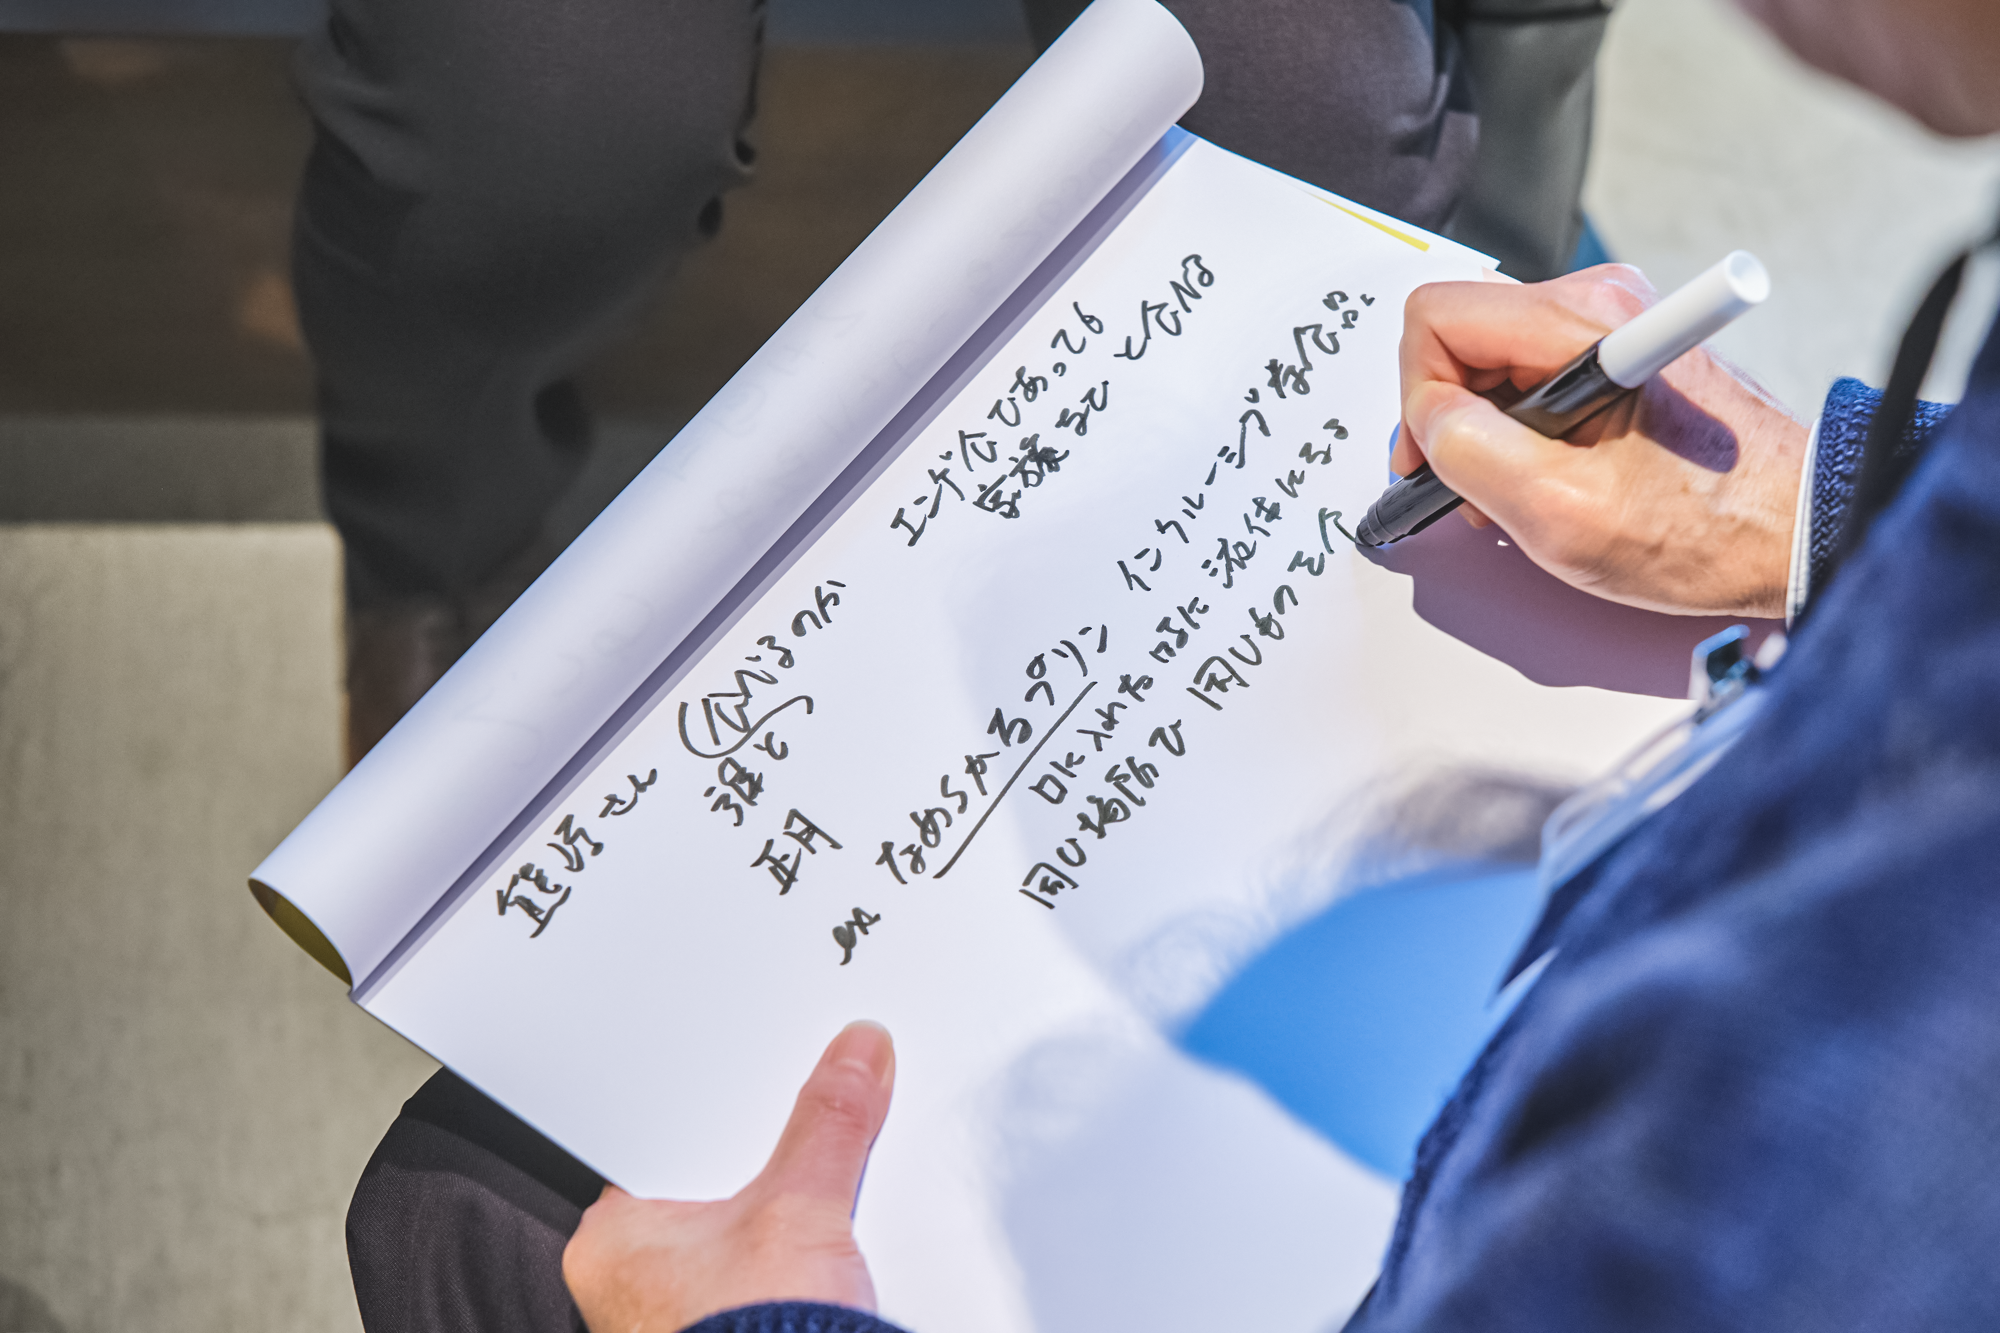 熊谷さん
食べるのか
誰と
正月
エンゲ食であっても
家族などと食べる
ex なめらかるプリン
インクルーシブな食品。
口に入れた時に液体になる
同じ場所で同じものを食